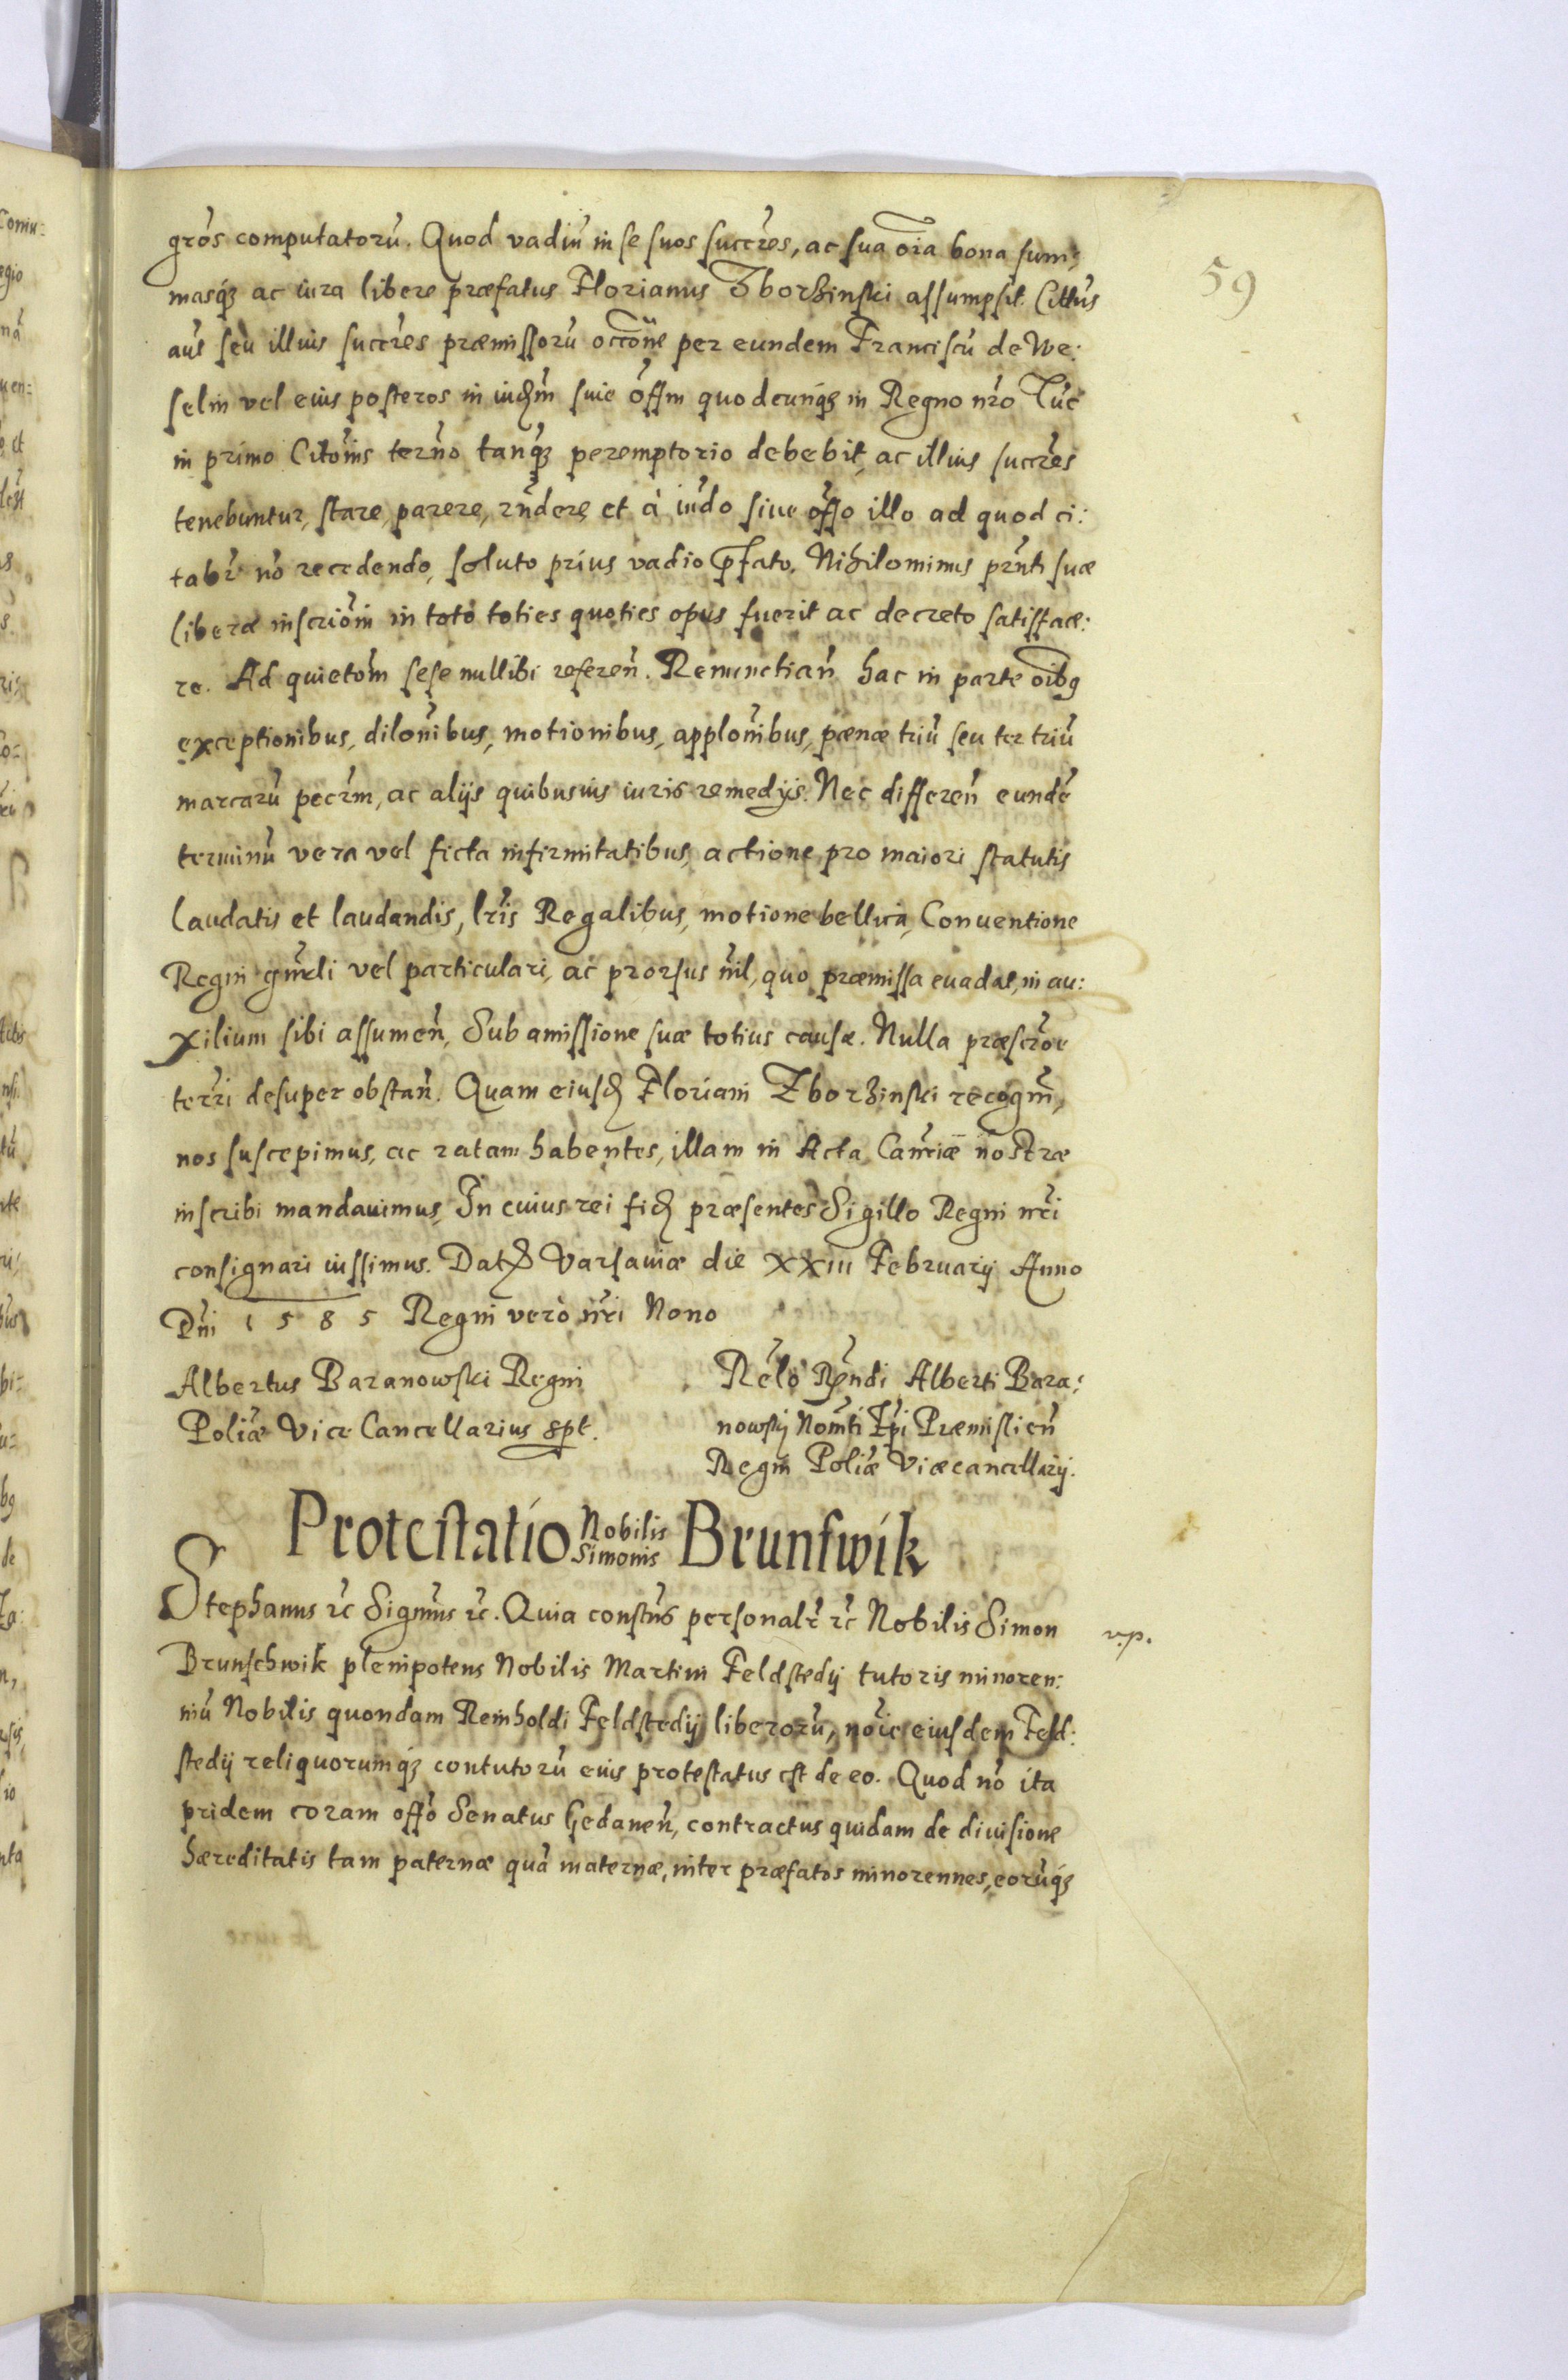 59
grōs computatorū. Quod vadiū in se suos succr̄es, ac sua oīa bona sum:
masq́ꝫ ac iura libere præfatus Florianus Zborzinski assumpsit. Cittus
aūt seu illius succr̄es præmissorū occōne per eundem Franciscū de We:
selin vel eius posteros in iudm̄ siue off̄m quodcunq́ꝫ in Regno nr̄o Tūc
in primo Citōnis terno tanq̄ꝫ peremptorio debebit, ac illius succr̄es
tenebuntur, stare, parere, rn̄dere, et à iud̄o siue off̄o illo ad quod ci:
tabr̄ nō recedendo, soluto prius vadio p̄fato. Nihilominus prn̄ti suæ
liberæ inscriōni in toto toties quoties opus fuerit ac decreto satisface:
re. Ad quietōm sese nullibi referen̄. Renunctian̄ hac in parte oībꝫ
exceptionibus, dilōnibus, motionibus, applōnibus, pænæ triū seu ter triū
marcarū pecr̄m, ac alijs quibusuis iuris remedijs. Nec differen̄ eundē
terminū vera vel ficta infirmitatibus, actione pro maiori statutis
laudatis et laudandis, lr̄is Regalibus, motione bellica, Conuentione
Regni gn̄rli vel particulari, ac prorsus nīl, quo præmissa euadat, in au:
xilium sibi assumen̄, Sub amissione suæ totius causæ. Nulla præscr̄oe
terr̄i desuper obstan̄. Quam eiusd̄ Floriani Zborzinski recogm̄,
nos suscepimus, ac ratam habentes, illam in Acta Can̄riæ nostræ
inscribi mandauimus, In cuius rei fid̄ præsentes Sigillo Regni nr̄i
consignari iussimus. Datꝫ Varsauiæ die XXIII February Anno
Dn̄i 1585 Regni verò nr̄i Nono
Albertus Baranowski Regni
Poliæ Vice Cancellarius spt.
Rēlo Rn̄di Alberti Bara:
nowsky Nomn̄ti Ep̄i Præmislien̄
Regni Poliæ Vicecancellarij.
Protestatio Nobilis Simonis Brunswik
Stephanus ꝛc̄ Signm̄us ꝛc̄. Quia constn̄s personalr̄ ꝛc̄ Nobilis Simon
v.p.
Brunschwik plenipotens Nobilis Martini Feldstedij tutoris minoren:
niū Nobilis quondam Reinholdi Feldstedij liberorū, noīe eiusdem Feld:
stedij reliquorumq́ꝫ contutorū eius protestatus est de eo. Quod nō ita
pridem coram off̄o Senatus Gedanen̄, contractus quidam de diuisione
hæreditatis tam paternæ quā maternæ, inter præfatos minorennes, eorūq́ꝫ